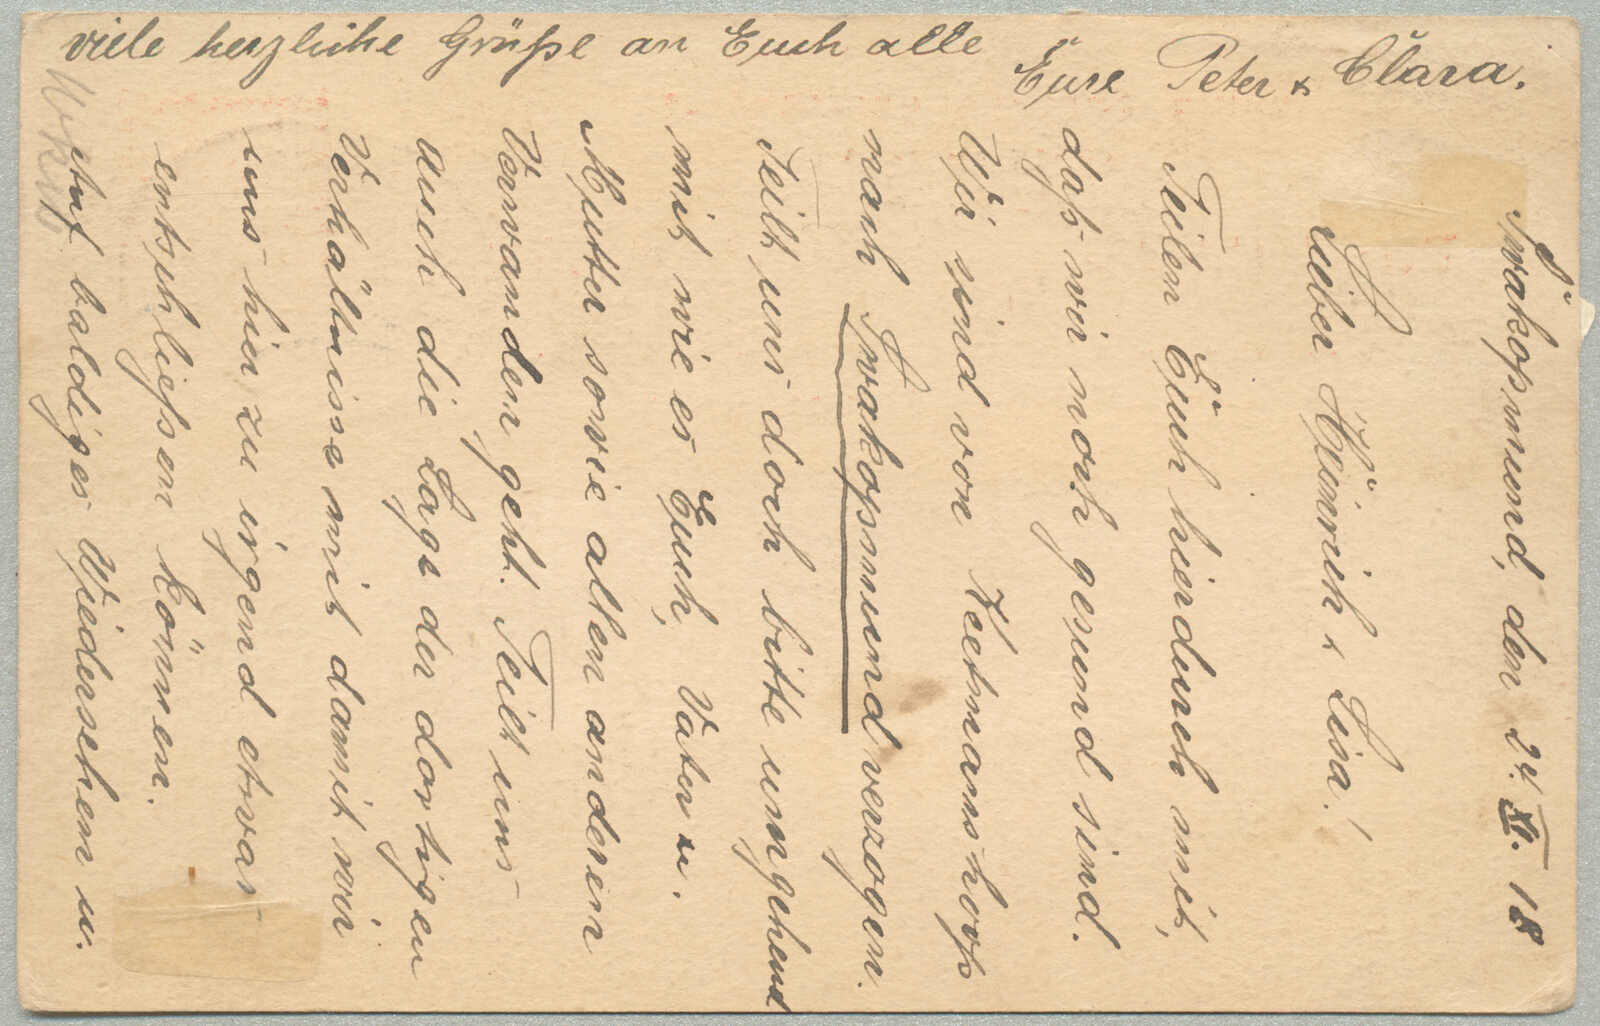 Swakopmund, den 24. XI. 18
Lieber Heinrich & Lisa!
Teilen Euch hierdurch mit,
daß wir noch gesund sind.
Wir sind von Keetmanshoop
nach Swakopmund verzogen.
Teilt uns doch bitte umgehend
mit wie es Euch, Vater u.
Mutter sowie allen anderen
Verwanden geht. Teilt uns
auch die Lage der dortigen
Verhältnisse mit damit wir
uns hier zu irgend etwas
entschließen können.
Auf baldiges Wiedersehen u.
viele herzliche Grüße an Euch alle
Eure Peter & Clara.